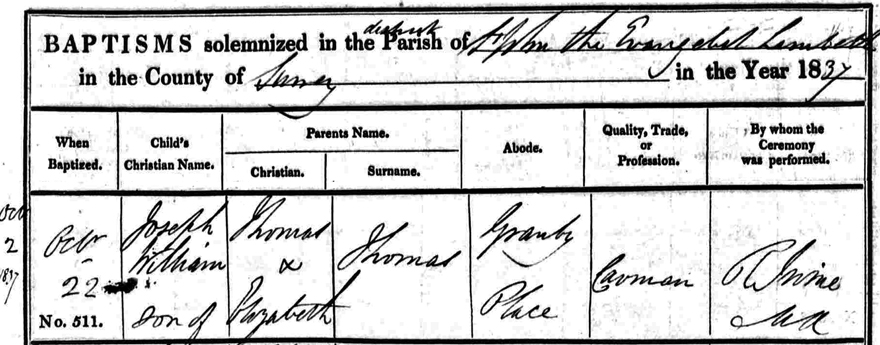 district
BAPTISMS solemnized in the Parish of St John the Evangelist Lambeth
in the County of Surrey in the Year 1837
When Baptized.
Child's Christian Name.
Parents Name.
Christian.
Surname.
Abode.
Quality, Trade, or Profession.
By whom the Ceremony was performed.
Octr
2
1837
Octr
22
No. 511.
Joseph
William
son of
Thomas
&
Elizabeth
Thomas
Granby
Place
Carman